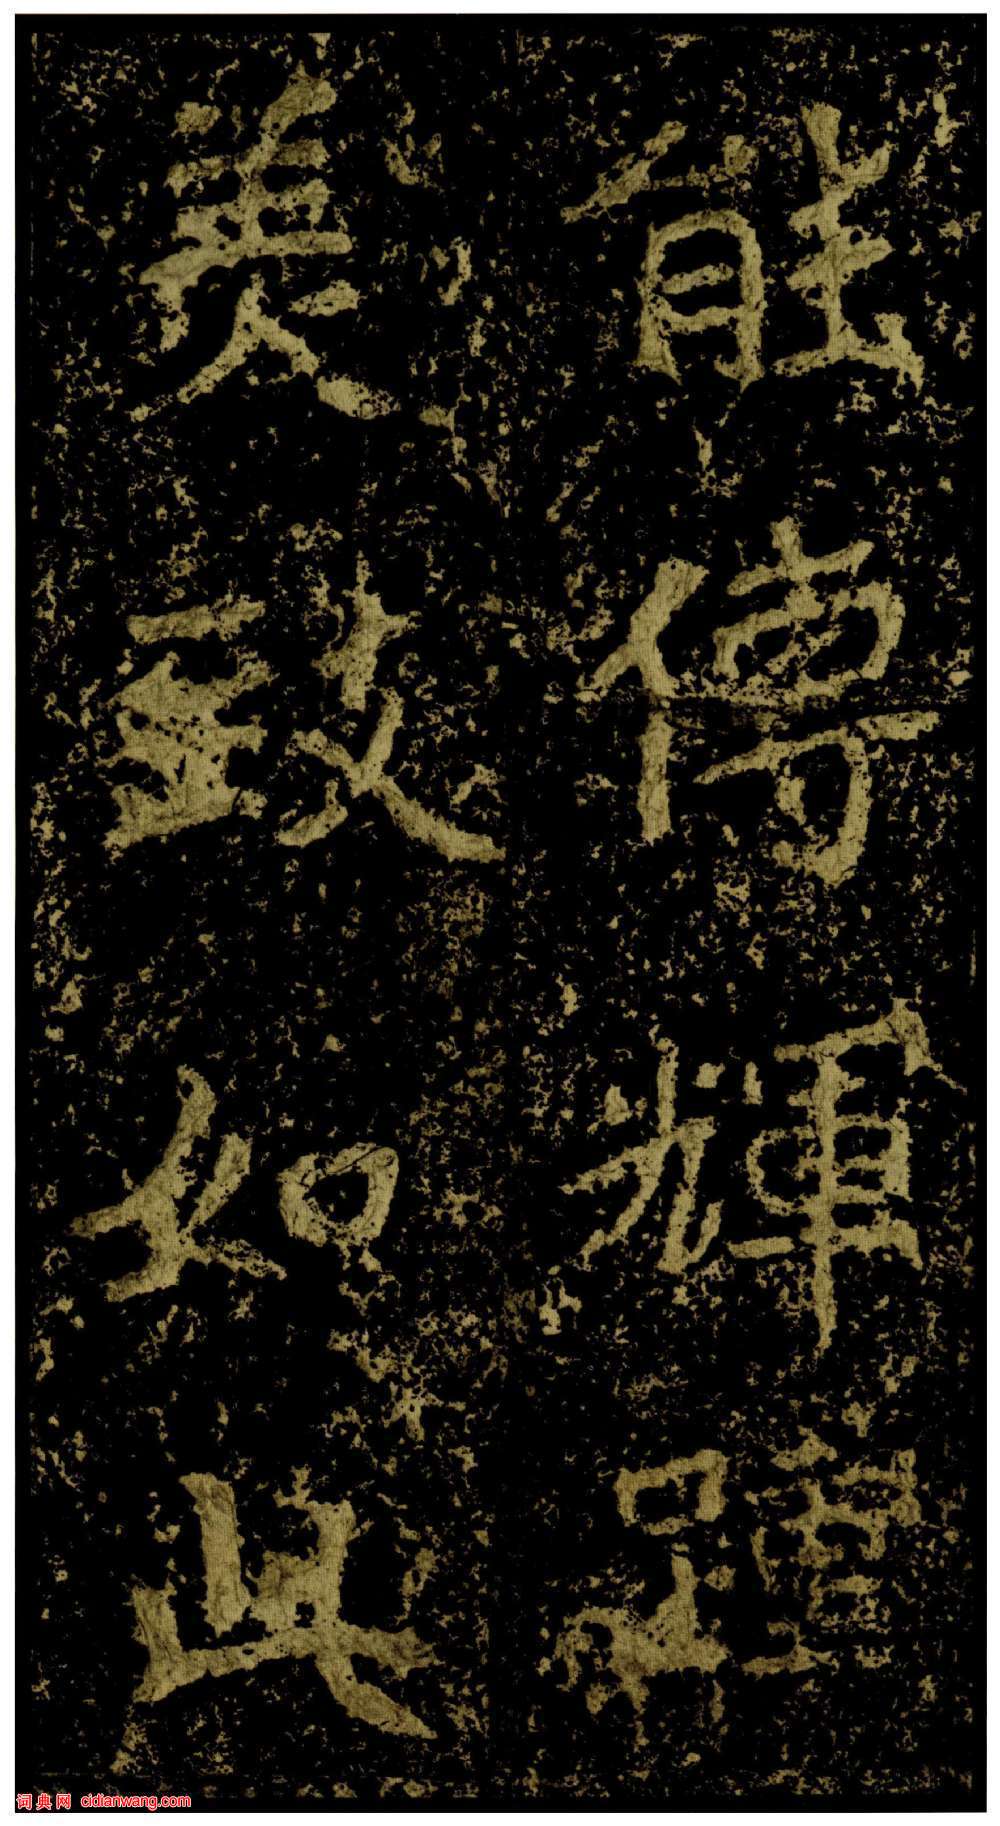 能傳輝踵
美致如此
词典网 cidianwang.com